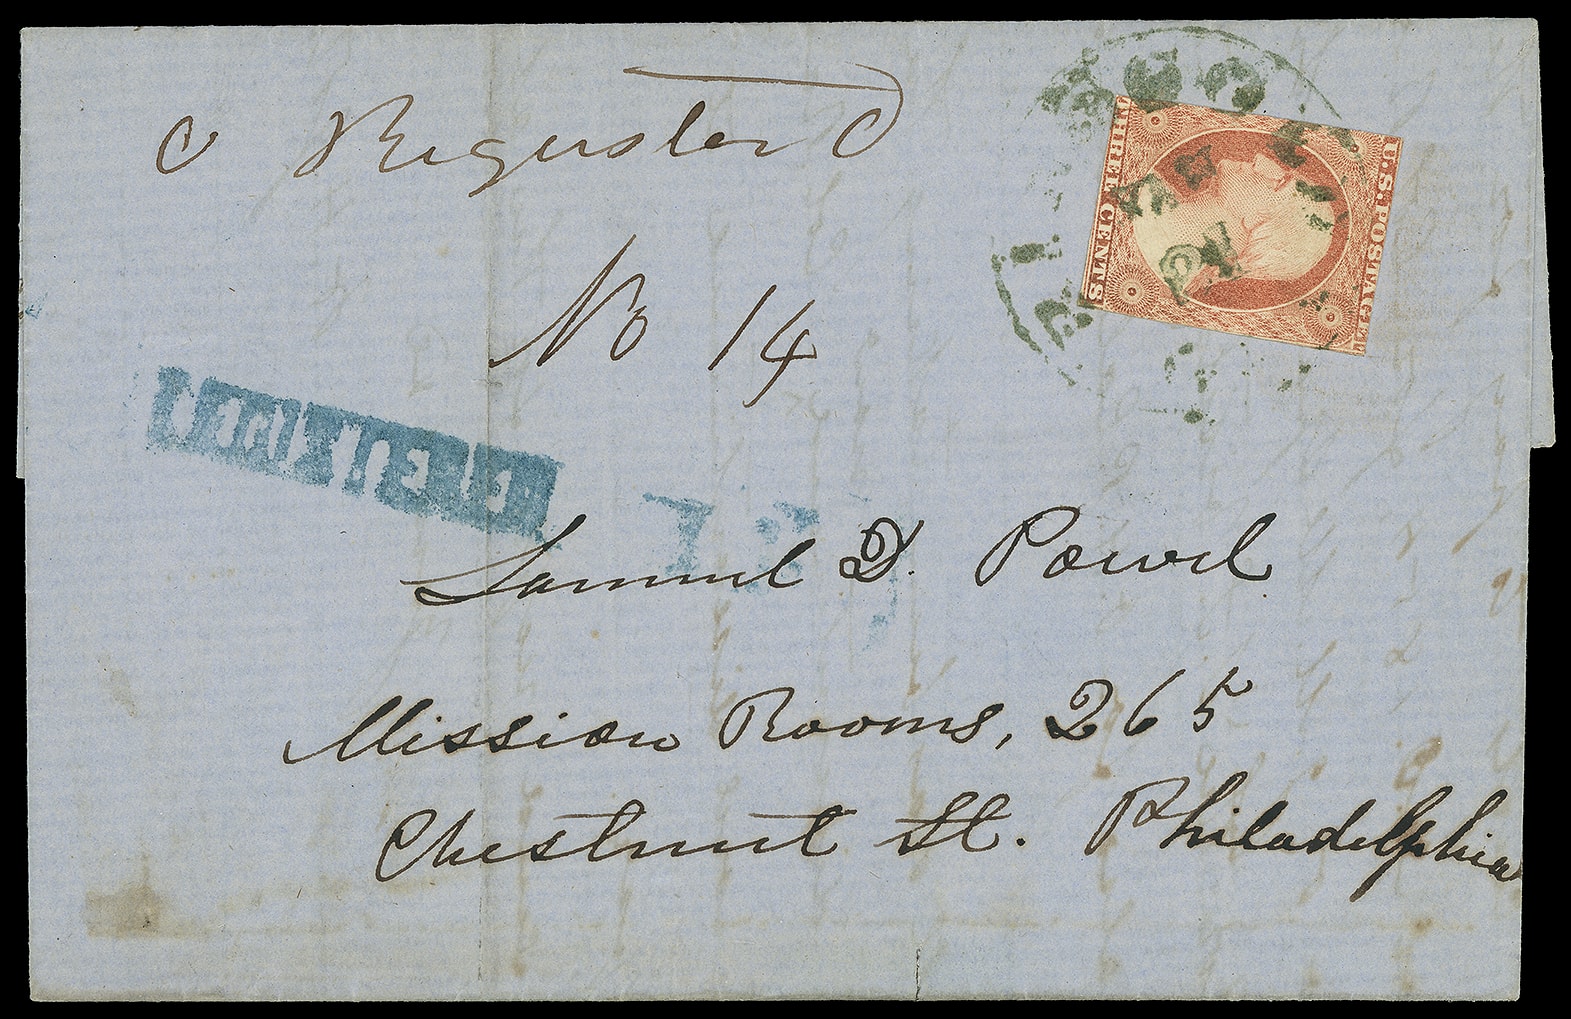 Registerd
No 14
U.S. POSTAGE
THREE CENTS
Samuel D. Powel
Mission Rooms, 265
Chestnut St. Philadelphia